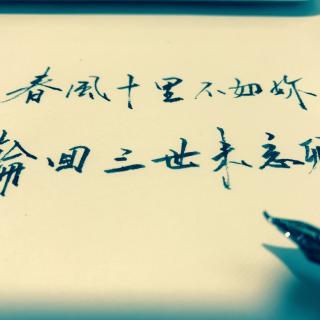 春風十里不如妳
輪回三世未忘